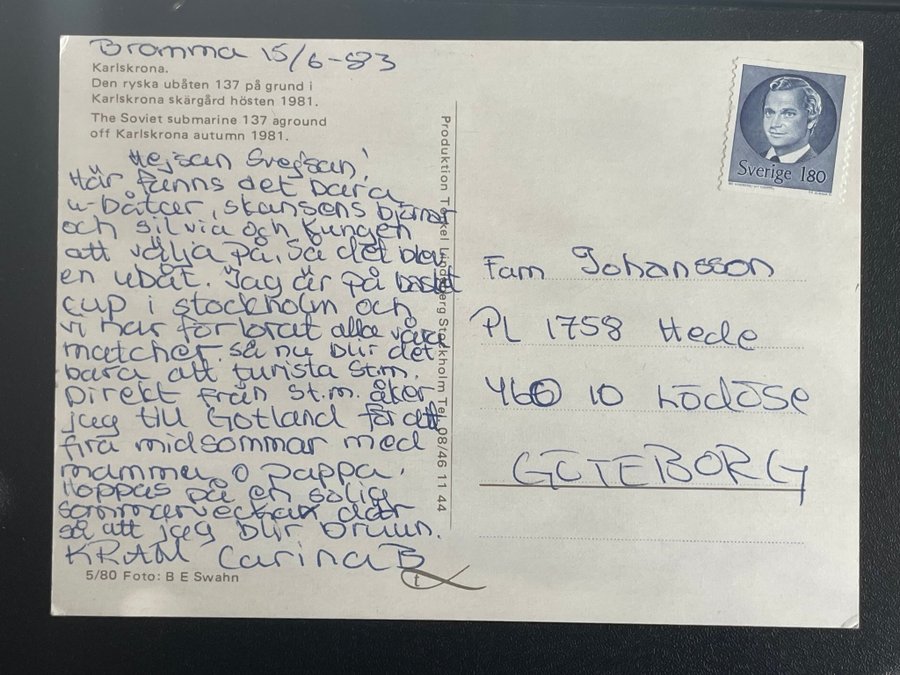 Bromma 15/6-83
Karlskrona.
Den ryska ubåten 137 på grund i
Karlskrona skärgård hösten 1981.
The Soviet submarine 137 aground
off Karlskrona autumn 1981.
Hejsan Svejsan!
Här fanns det bara
u-båtar, skansens björnar
och silvia och kungen
att välja på. Så det blev
en ubåt. Jag är på
cup i stockholm och
vi har förlorat alla våra
matcher, så nu blir det
bara att turista st.m.
Direkt från st.m. åker
jag till Gotland för att
fira midsommar med
mamma o pappa.
Hoppas på en solig
sommarvecka där
så att jag blir bruun.
KRAM Carina B
5/80 Foto: B E Swahn
t
Produktion Torkel Lindeberg Stockholm Tel. 08/46 11 44
Sverige 180
Fam Johansson
PL 1758 Hede
460 10 Lödöse
GÖTEBORG